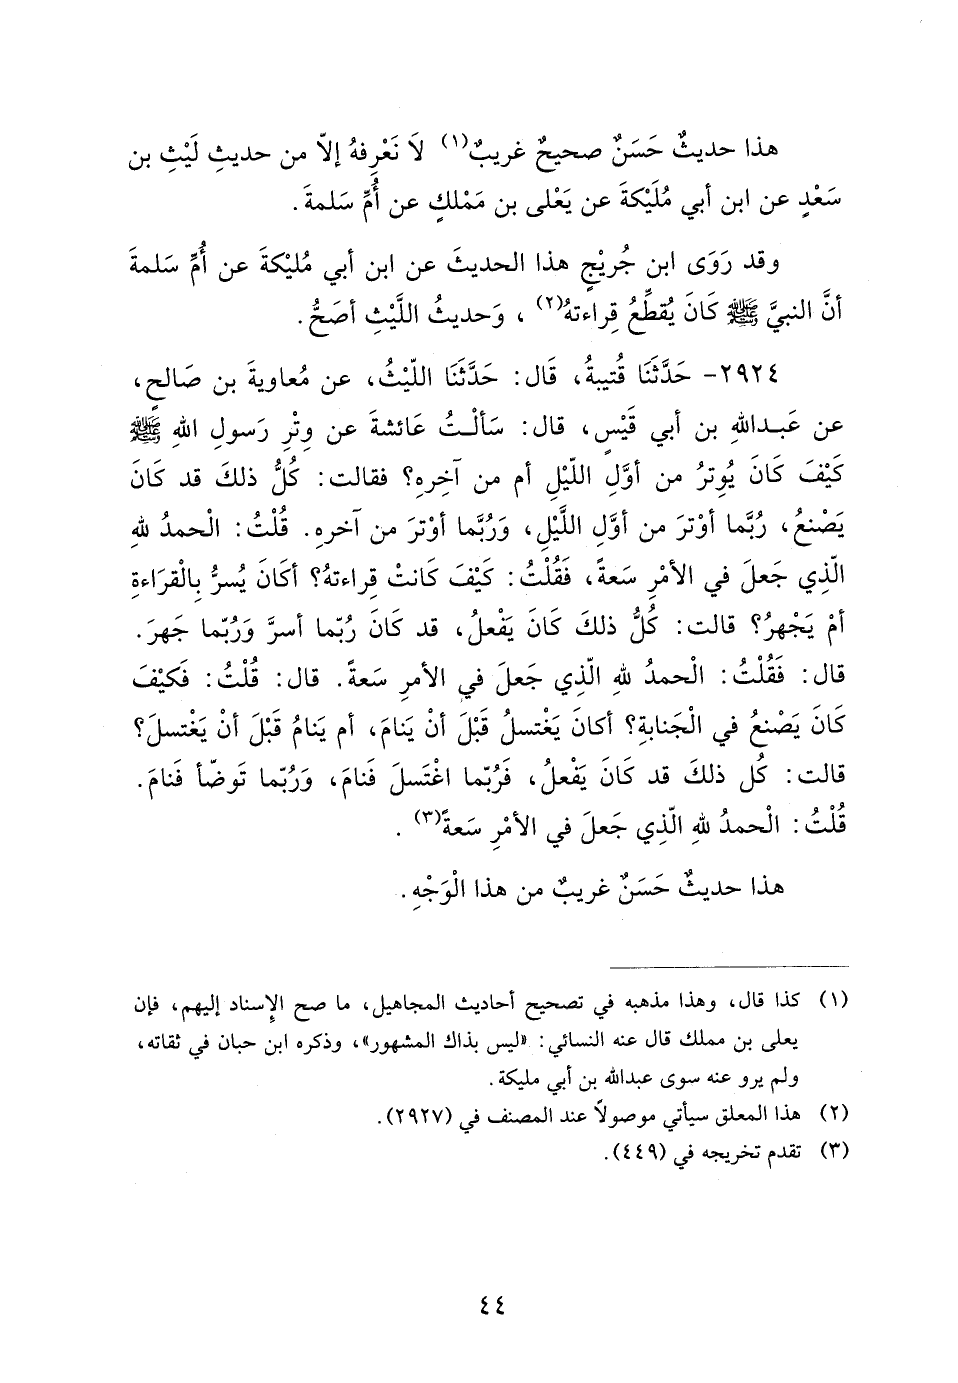 هذا حديثٌ حَسَنٌ صحيحٌ غريبٌ(١) لاَ نَعْرِفهُ إلاّ من حديثِ لَيْثِ بن
سَعْدٍ عن ابن أبي مُلَيْكةَ عن يَعْلى بن مَمْلكٍ عن أُمِّ سَلمةَ.
وقد رَوَى ابن جُريْجٍ هذا الحديثَ عن ابن أبي مُليْكةَ عن أُمِّ سَلمةَ
أنَّ النبيَّ ﷺ كَانَ يُقطِّعُ قِراءتهُ(٢) ، وَحديثُ اللَّيْثِ أصَحُّ.
٢٩٢٤- حَدَّثَنَا قُتيبةُ، قَال: حَدَّثَنَا اللّيْثُ، عن مُعاويةَ بن صَالحٍ،
عن عَبدِاللهِ بن أبي قَيْسٍ، قال: سَألْتُ عَائشةَ عن وِتْرِ رَسولِ اللهِ ﷺ
كَيْفَ كَانَ يُوتِرُ من أوَّلِ اللّيْلِ أم من آخِرِه؟ فقالت: كُلُّ ذلكَ قد كَانَ
يَصْنعُ، رُبَّما أوْترَ من أوَّلِ اللَّيْلِ، وَرُبَّما أوْترَ من آخرهِ. قُلْتُ: الْحمدُ للهِ
الّذِي جَعلَ في الأمْرِ سَعةً، فَقُلْتُ: كَيْفَ كَانتْ قِراءتهُ؟ أكَانَ يُسرُّ بِالْقراءةِ
أمْ يَجْهرُ؟ قالت: كُلُّ ذلكَ كَانَ يَفْعلُ، قد كَانَ رُبّما أسرَّ وَرُبّما جَهرَ.
قال: فَقُلْتُ: الْحمدُ للهِ الّذِي جَعلَ في الأمرِ سَعةً. قال: قُلْتُ: فَكيْفَ
كَانَ يَصْنعُ في الْجَنابةِ؟ أكانَ يَغْتسلُ قَبْلَ أنْ يَنامَ، أم يَنامُ قَبْلَ أنْ يَغْتسلَ؟
قالت: كُل ذلكَ قد كَانَ يَفْعلُ، فَرُبّما اغْتَسلَ فَنامَ، وَرُبّما تَوضّأ فَنامَ.
قُلْتُ: الْحمدُ للهِ الّذِي جَعلَ في الأمْرِ سَعةً(٣) .
هذا حديثٌ حَسَنٌ غريبٌ من هذا الْوَجْهِ.
(١) كذا قال، وهذا مذهبه في تصحيح أحاديث المجاهيل، ما صح الإسناد إليهم، فإن
يعلى بن مملك قال عنه النسائي: «ليس بذاك المشهور»، وذكره ابن حبان في ثقاته،
ولم يرو عنه سوى عبدالله بن أبي مليكة.
(٢) هذا المعلق سيأتي موصولاً عند المصنف في (٢٩٢٧).
(٣) تقدم تخريجه في (٤٤٩).
٤٤